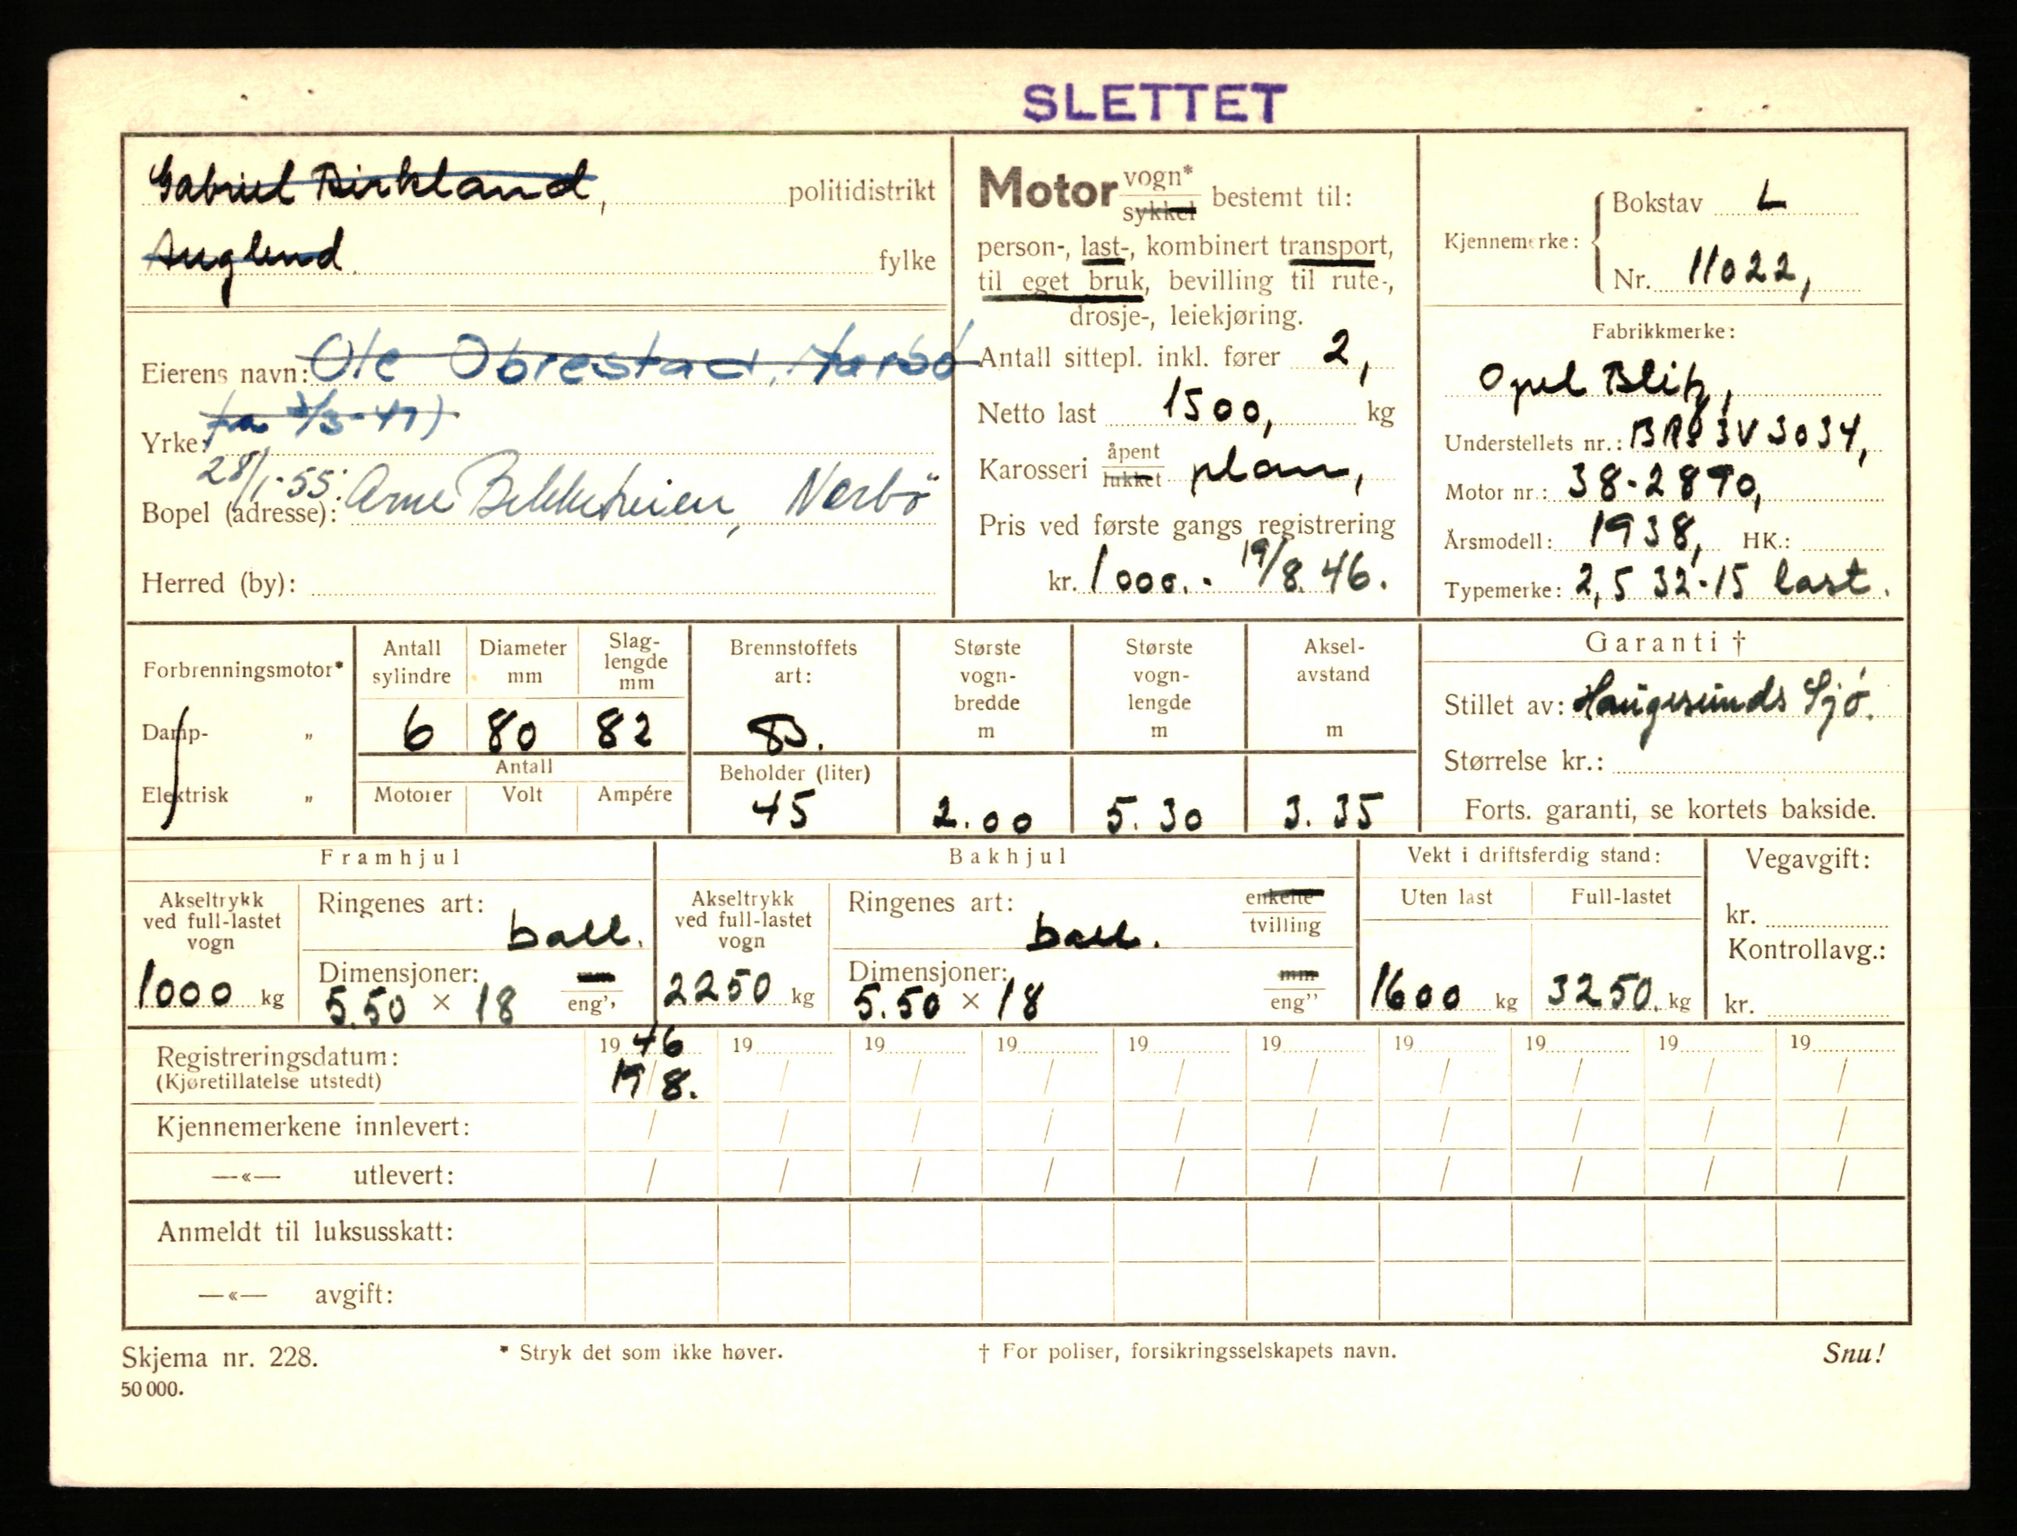 SLETTET
Gabriel Birkland, politidistrikt
Auglend fylke
Eierens navn: Ole Obrestad, Nærbø
fra /3-47)
Yrke:
28/1-55:
Bopel (adresse): Arne Bekkeheien, Nærbø
Herred (by):
Motor vogn* sykkel bestemt til:
person-, last-, kombinert transport,
til eget bruk, bevilling til rute-,
drosje-, leiekjøring.
Antall sittepl. inkl. fører 2,
Netto last 1500, kg
Karosseri åpent lukket plan,
Pris ved første gangs registrering
kr. 1000.- 19/8.46.
Kjennemerke: Bokstav L
Nr. 11022,
Fabrikkmerke:
Opel Blitz,
Understellets nr.: 3034,
Motor nr.: 38-2890,
Årsmodell: 1938, HK.:
Typemerke: 2,5 32-15 last.
Forbrenningsmotor*
Damp- „
Elektrisk „
Antall sylindre Diameter mm Slaglengde mm
6 80 82
Antall
Motorer Volt Ampére
Brennstoffets art:
B.
Beholder (liter)
45
Største vogn-bredde m
2.00
Største vogn-lengde m
5.30
Aksel-avstand m
3.35
Garanti †
Stillet av: Haugesunds Sjø.
Størrelse kr.:
Forts. garanti, se kortets bakside.
Framhjul
Akseltrykk ved full-lastet vogn
1000 kg
Ringenes art: ball.
Dimensjoner: mm
5.50 × 18 eng''
Bakhjul
Akseltrykk ved full-lastet vogn
2250 kg
Ringenes art: enkelte
ball. tvilling
Dimensjoner: mm
5.50 × 18 eng''
Vekt i driftsferdig stand:
Uten last Full-lastet
1600 kg 3250. kg
Vegavgift:
kr.
Kontrollavg.:
kr.
Registreringsdatum: 1946 19 19 19 19 19 19 19 19 19
(Kjøretillatelse utstedt) 19/8. / / / / / / / / /
Kjennemerkene innlevert: / / / / / / / / / /
—«— utlevert: / / / / / / / / / /
Anmeldt til luksusskatt:
—«— avgift:
Skjema nr. 228. * Stryk det som ikke høver. † For poliser, forsikringsselskapets navn. Snu!
50 000.